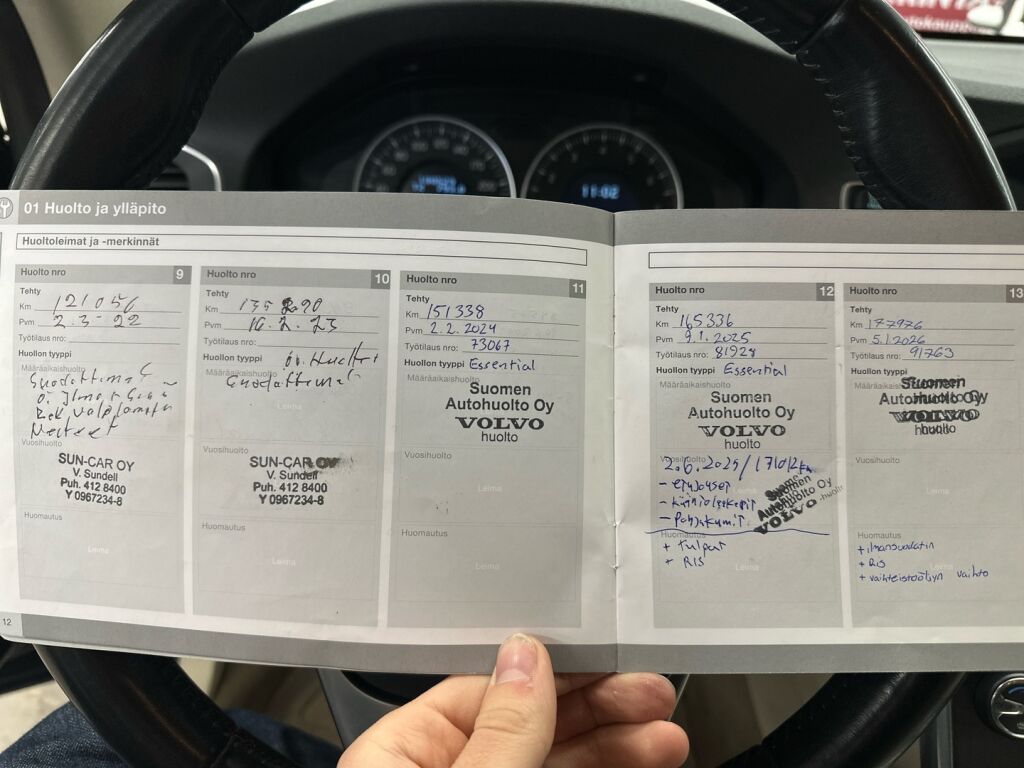 01 Huolto ja ylläpito
Huoltoleimat ja -merkinnät
Huolto nro 9
Tehty
Km 121056
Pvm 2.3-22
Työtilaus nro:
Huollon tyyppi
Määräaikaishuolto
Suodattimet
Nesteet
Vuosihuolto
SUN-CAR OY
V. Sundell
Puh. 412 8400
Y 0967234-8
Huomautus
Leima
12
Huolto nro 10
Tehty
Km
Pvm 16.2.23
Työtilaus nro:
Huollon tyyppi
Määräaikaishuolto
Suodattimet
Leima
Vuosihuolto
SUN-CAR OY
V. Sundell
Puh. 412 8400
Y 0967234-8
Huomautus
Leima
Huolto nro 11
Tehty
Km 151338
Pvm 2.2.2024
Työtilaus nro: 73067
Huollon tyyppi Essential
Määräaikaishuolto
Suomen
Autohuolto Oy
VOLVO
huolto
Vuosihuolto
Leima
Huomautus
Leima
Huolto nro 12
Tehty
Km 165336
Pvm 9.1.2025
Työtilaus nro: 81928
Huollon tyyppi Essential
Määräaikaishuolto
Suomen
Autohuolto Oy
VOLVO
huolto
Vuosihuolto
2.6.2025/171012km
- etujouset
- Pohjakumit
Suomen
Autohuolto Oy
VOLVO-huolto
Huomautus
+ tulpat
+ RIS
Leima
Huolto nro 13
Tehty
Km 177976
Pvm 5.1.2026
Työtilaus nro: 91763
Huollon tyyppi
Määräaikaishuolto
Suomen
Autohuolto Oy
VOLVO
huolto
Vuosihuolto
Leima
Huomautus
+ ilmansuodatin
+ RIS
+ vaihteistoöljyn vaihto
11:02